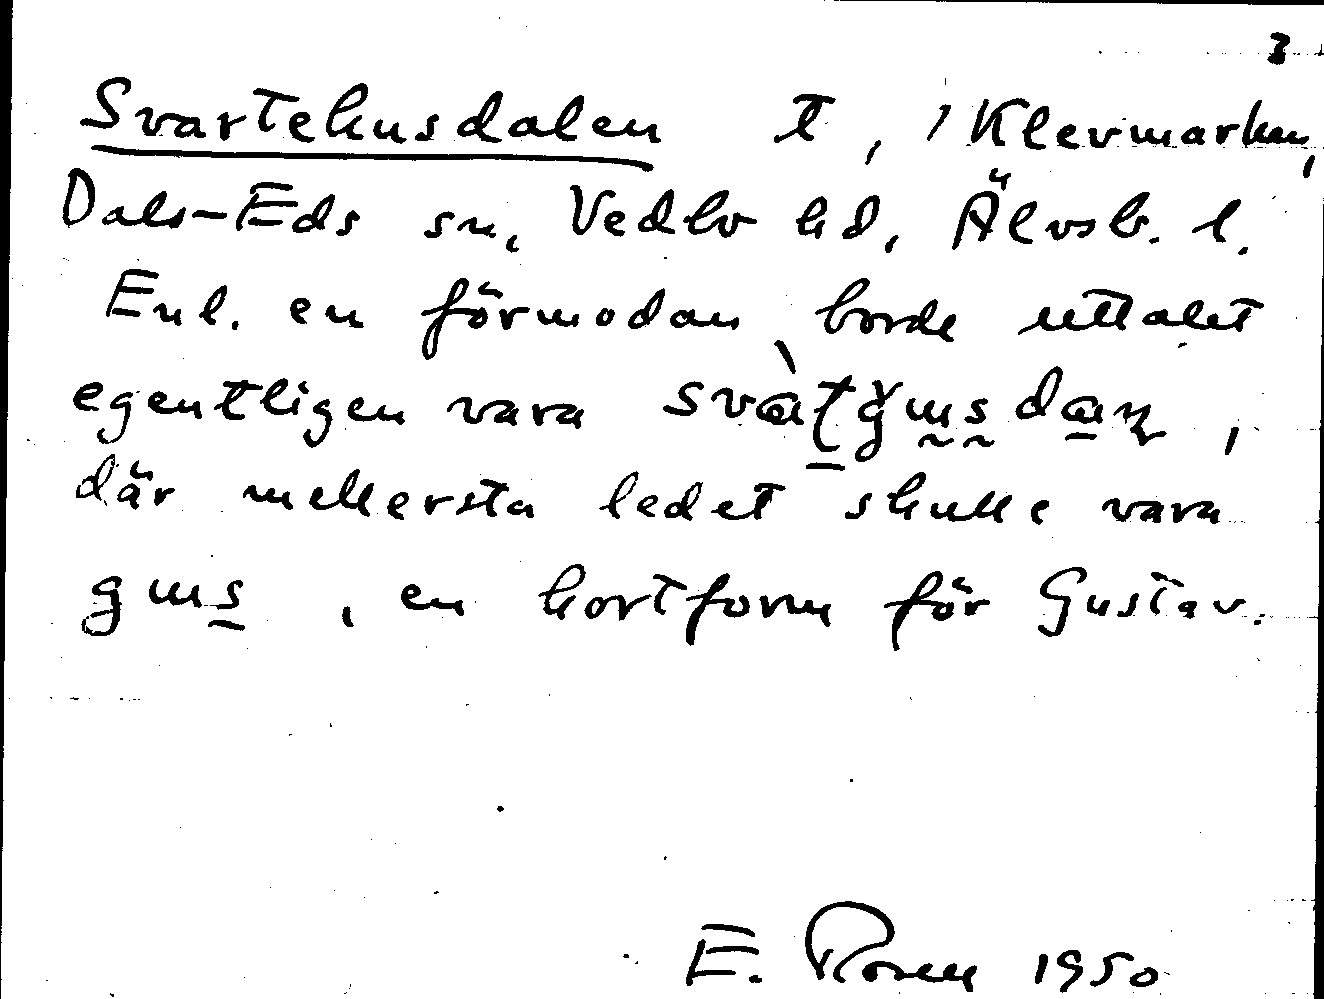 3
Svartehusdalen t, 1 Klevmarken,
Dals-Eds sn, Vedbo hd, Älvsb. l.
Enl. en förmodan borde uttalet
egentligen vara
där mellersta ledet skulle vara
gus, en kortform för Gustav.
E. Rosell 1950